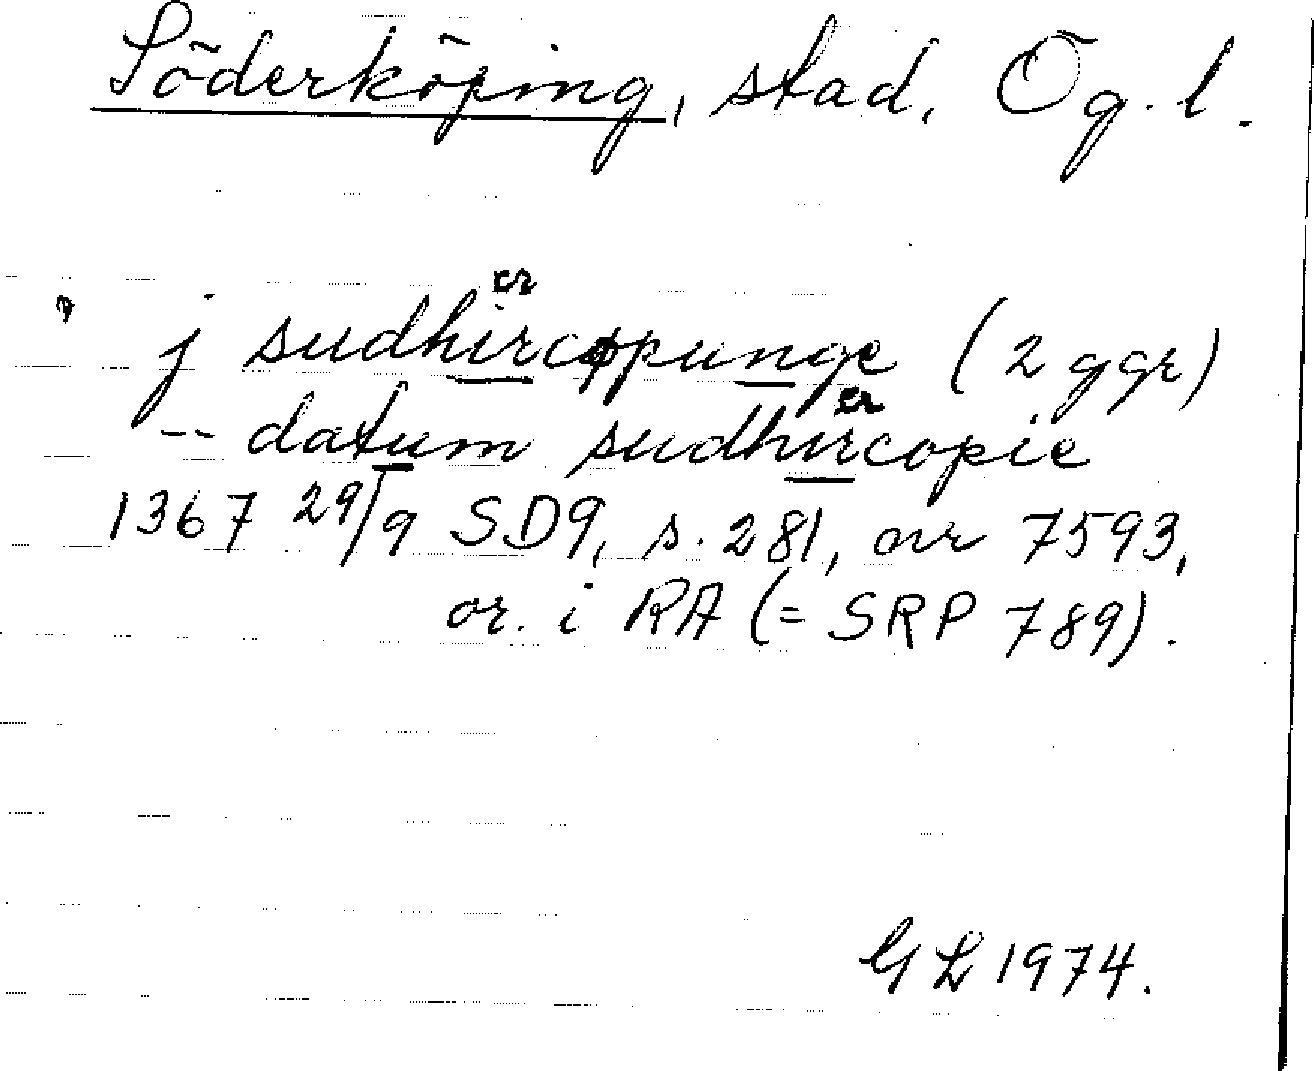 Söderköping, stad, Ög. l.
j sudhircopunge (2 ggr)
er
-- datum sudhircopie
er
1367 29/9 SD9, s. 281, nr 7593,
or. i RA (= SRP 789).
GL 1974.